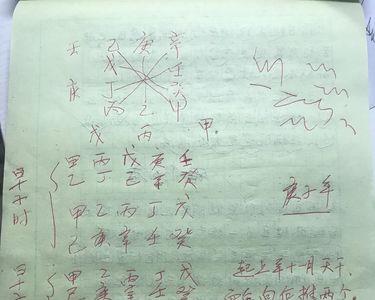 壬 乙 庚 辛
戊 壬
庚 丁 癸
丙 乙 甲
戊 丙 甲
甲 丙 戊 庚 壬
乙 丁 己 辛 癸
早子时
甲 乙 丙 丁 戊
己 庚 辛 壬 癸
庚子年
甲 乙 丙 丁 戊
己 庚 辛 壬 癸
起上年十一月天干,